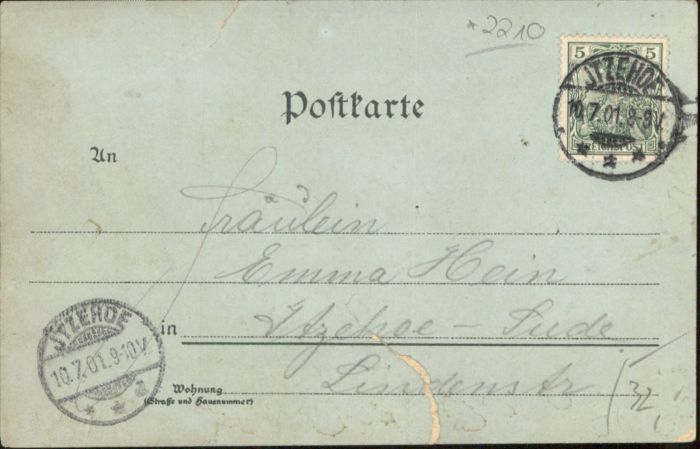 *2210
5 5
JTZEHOE
10.7.01.8-9V.
REICHSPOST
Poſtkarte
An
Fräulein
Emma Hein
in Itzehoe - Sude
Lindenstr
32
Wohnung
(Straße und Hausnummer)
JTZEHOE
10.7.01.9-10V.
a